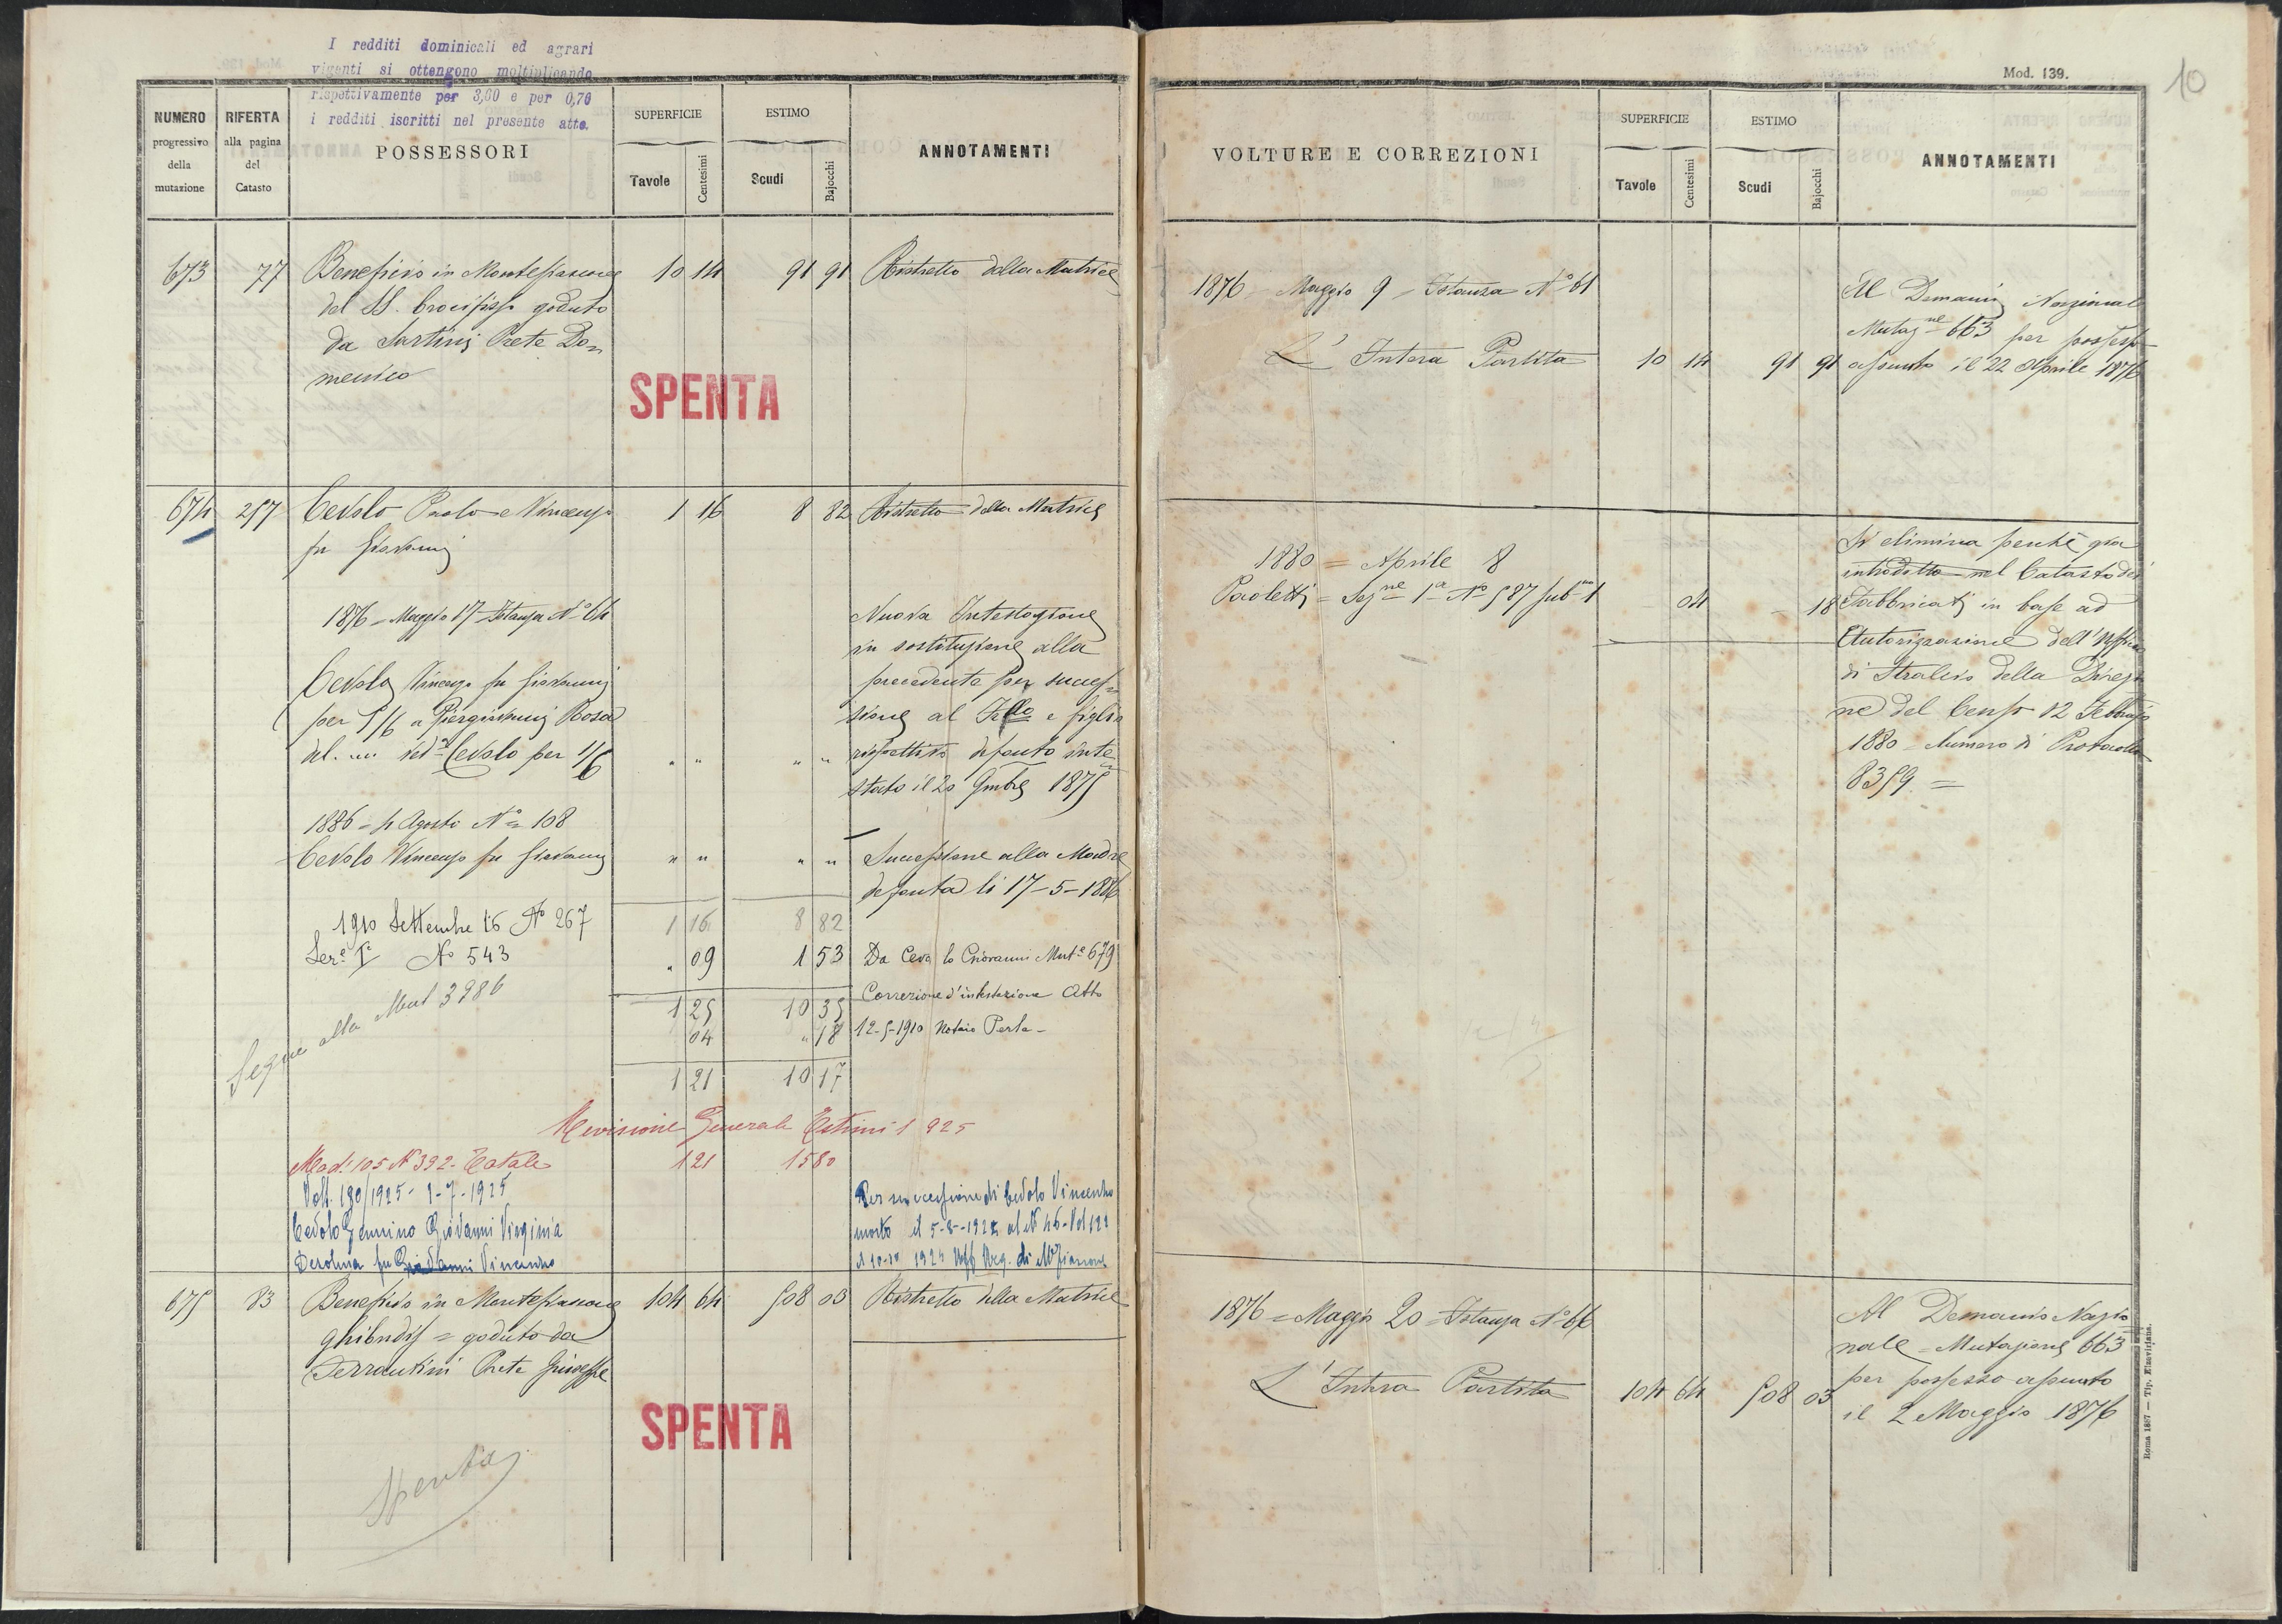 I redditi dominicali ed agrari
vigenti si ottengono moltiplicando
rispettivamente per 3,60 e per 0,70
i redditi iscritti nel presente atto.
NUMERO progressivo della mutazione
RIFERTA alla pagina del Catasto
POSSESSORI
SUPERFICIE
Tavole Centesimi
ESTIMO
Scudi Bajocchi
ANNOTAMENTI
673 77 Beneficio in Montefiascone 10 14 91 91 Ristretto della Matrice
del SS. Crocifisso goduto
da Sartini Prete Do=
menico
SPENTA
674 257 Cevolo Paolo e Vincenzo 1 16 8 82 Ristretto della Matrice
fu Giovanni
1876 = Maggio 17 = Istanza N° 64
Cevolo Vincenzo fu Giovanni
per 5/6 a Piergiovanni Rosa
ved.a Cevolo per 1/6 " " " "
Nuova Intestazione
in sostituzione alla
precedente per succes=
sione al Fr.llo e figlio
rispettivo defunto inte=
stato il 20 9mbre 1875
1886 = 4 Agosto N° 108
Cevolo Vincenzo fu Giovanni " " " "
Successione alla Madre
defunta li 17-5-1886
1910 Settembre 16 N° 267 1 16 8 82
Ser.e I.a N° 543 " 09 1 53 Da Cevolo Giovanni Mut.e 679
1 25 10 35 Correzione d'intestazione Atto
04 " 18 12-5-1910 Notaio Perla -
Segue alla Mut 3986
1 21 10 17
Revisione Generale Estimi 1925
Mod. 105 N° 392 - Totale 1 21 15 80
Volt. 180/1925 - 1-7-1925
Cevolo Giovanni Virginia
fu Giovanni Vincenzo
Per successione di Cevolo Vincenzo
morto il
675 83 Beneficio in Montefiascone 104 64 508 03 Ristretto della Matrice
= goduto da
Ferrantini Prete Giuseppe
SPENTA
Spenta
10
Mod. 139.
VOLTURE E CORREZIONI
SUPERFICIE
Tavole Centesimi
ESTIMO
Scudi Bajocchi
ANNOTAMENTI
1876 = Maggio 9 = Istanza N° 61
L' Intera Partita 10 14 91 91
Al Demanio Nazionale
Mutaz.ne 663 per possesso
assunto il 22 Aprile 1876
1880 = Aprile 8
Paoletti = Sez.ne 1a N° 587 sub 1 04 18
Si elimina perchè già
introdotto nel Catasto dei
Fabbricati in base ad
Autorizzazione dell'Uffizio
di Stralcio della Direzio
ne del Censo 12 Febbraio
1880 = Numero di Protocollo
8359. =
1876 = Maggio 20 = Istanza N° 66
L' Intera Partita 104 64 508 03
Al Demanio Nazio
nale = Mutazione 663
per possesso assunto
il 2 Maggio 1876
Roma 1887 — Tip. Elzeviriana.